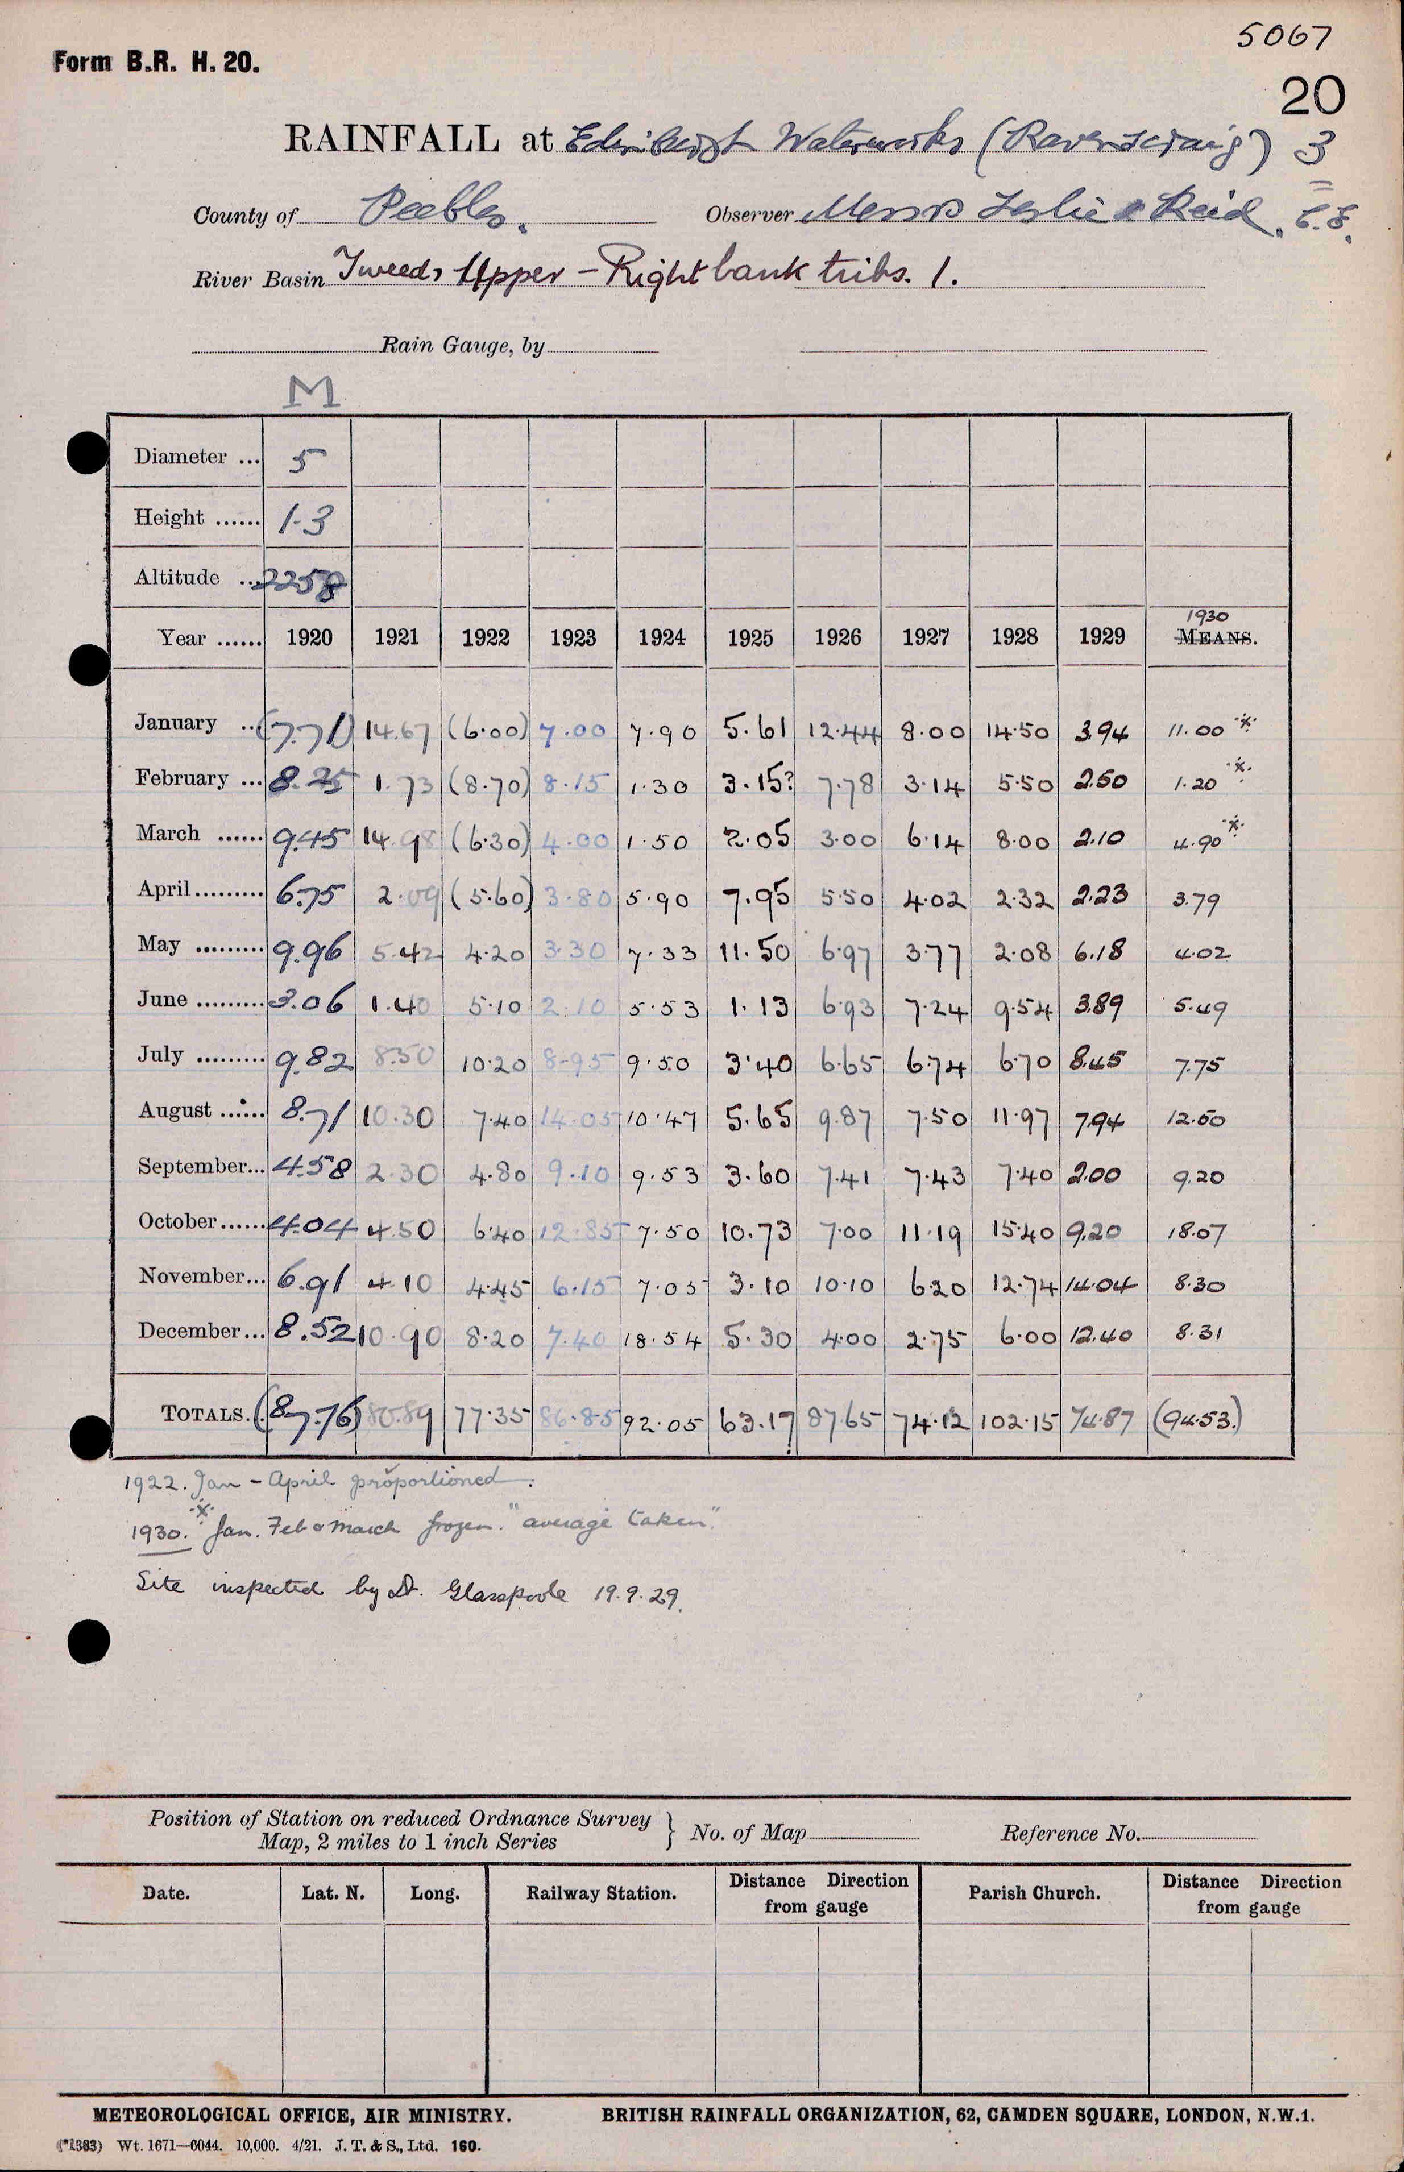 5067
Form B.R. H. 20.
20
RAINFALL at Edinburgh Waterworks (Ravenscraig) 3
County of Peebles. Observer Messrs Leslie & Reid. C.E.
River Basin Tweed, Upper - Right bank tribs. 1.
Rain Gauge, by
M
Diameter ... 5
Height ...... 1.3
Altitude ... 2258
1930
Year ...... 1920 1921 1922 1923 1924 1925 1926 1927 1928 1929 MEANS.
January ... (7.71) 14.67 (6.00) 7.00 7.90 5.61 12.44 8.00 14.50 3.94 11.00 *
February ... 8.25 1.73 (8.70) 8.15 1.30 3.15? 7.78 3.14 5.50 2.50 1.20 *
March ...... 9.45 14.98 (6.30) 4.00 1.50 2.05 3.00 6.14 8.00 2.10 4.90 *
April ......... 6.75 2.09 (5.60) 3.80 5.90 7.95 5.50 4.02 2.32 2.23 3.79
May ......... 9.96 5.42 4.20 3.30 7.33 11.50 6.97 3.77 2.08 6.18 4.02
June ......... 3.06 1.40 5.10 2.10 5.53 1.13 6.93 7.24 9.54 3.89 5.49
July ......... 9.82 8.50 10.20 8.95 9.50 3.40 6.65 6.74 6.70 8.45 7.75
August ...... 8.71 10.30 7.40 14.05 10.47 5.65 9.87 7.50 11.97 7.94 12.50
September... 4.58 2.30 4.80 9.10 9.53 3.60 7.41 7.43 7.40 2.00 9.20
October ...... 4.04 4.50 6.40 12.85 7.50 10.73 7.00 11.19 15.40 9.20 18.07
November... 6.91 4.10 4.45 6.15 7.05 3.10 10.10 6.20 12.74 14.04 8.30
December ... 8.52 10.90 8.20 7.40 18.54 5.30 4.00 2.75 6.00 12.40 8.31
TOTALS. (87.76) 80.89 77.35 86.85 92.05 63.17? 87.65 74.12 102.15 74.87 (94.53.)
1922. Jan - April proportioned.
1930. * Jan. Feb & March frozen. "average taken".
Site inspected by Dr. Glasspoole 19.9.29.
Position of Station on reduced Ordnance Survey Map, 2 miles to 1 inch Series } No. of Map Reference No.
Date. Lat. N. Long. Railway Station. Distance Direction from gauge Parish Church. Distance Direction from gauge
METEOROLOGICAL OFFICE, AIR MINISTRY. BRITISH RAINFALL ORGANIZATION, 62, CAMDEN SQUARE, LONDON, N.W.1.
(*1383) Wt. 1671—6044. 10,000. 4/21. J. T. & S., Ltd. 160.